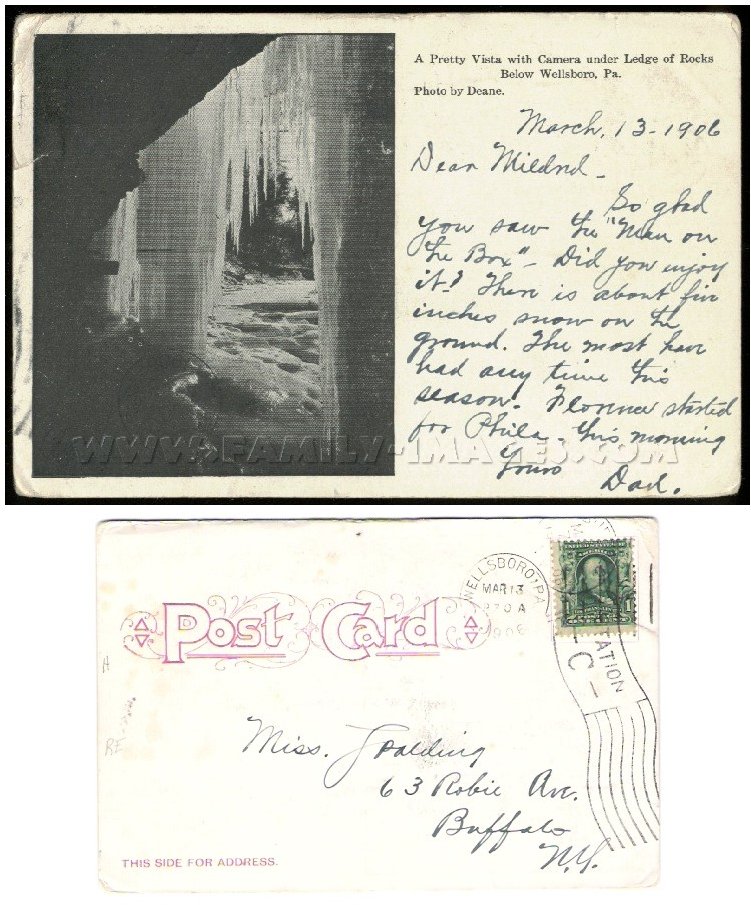 A Pretty Vista with Camera under Ledge of Rocks
Below Wellsboro, Pa.
Photo by Deane.
March, 13-1906
Dear Mildred -
So glad
you saw the "Man on
the Box" - Did you enjoy
it? There is about five
inches snow on the
ground. The most have
had any time this
season. Florence started
for Phila. this morning
Yours
Dad.
WWW.FAMILY-IMAGES.COM
WELLSBORO, PA.
MAR 13
1906
STATION
C-
UNITED STATES OF
1
Post Card
A
RE
Miss. Spalding
63 Robie Ave.
Buffalo
N.Y.
THIS SIDE FOR ADDRESS.